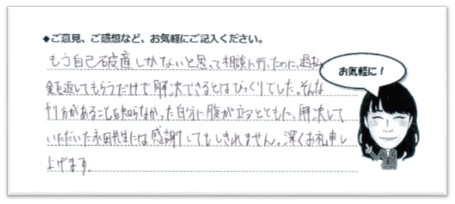 ◆ご意見、ご感想など、お気軽にご記入ください。
もう自己破産しかないと思って相談に行ったのに、過払
金を返してもらうだけで解決できるとはびっくりでした。そんな
やり方があることも知らなかった自分に腹が立つとともに、解決して
いただいた永田先生には感謝してもしきれません。深くお礼申し
上げます。
お気軽に！